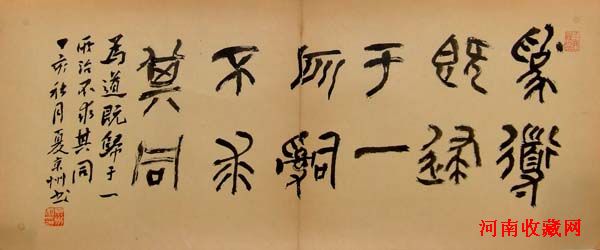 為道
既歸
于一
所治
不求
其同
為道既歸于一
所治不求其同
丁亥秋月夏京州书
河南收藏网